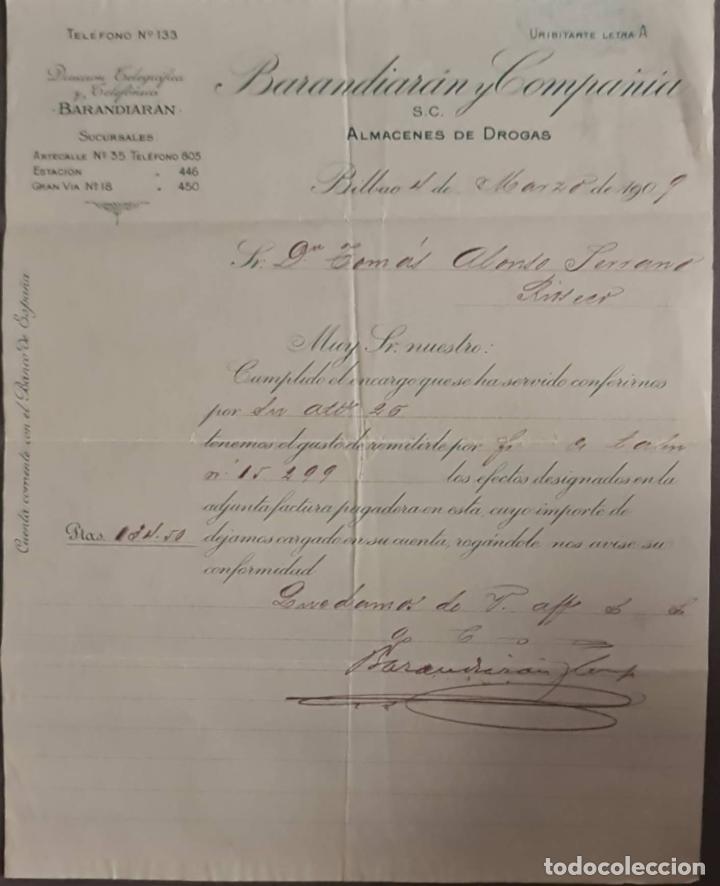 TELÉFONO Nº 133
URIBITARTE LETRA A
Dirección Telegráfica
y Telefónica
BARANDIARÁN
Barandiarán y Compañía
S.C.
ALMACENES DE DROGAS
SUCURSALES
ARTECALLE Nº 35 TELÉFONO 805
ESTACIÓN " 446
GRAN VIA Nº 18 " 450
Bilbao 4 de Marzo de 1909
Sr. Dn Tomás Alonso Serrano
Rioseco
Muy Sr. nuestro:
Cumplido el encargo que se ha servido conferirnos
por su atta 26
tenemos el gusto de remitirle por
nº 15299 los efectos designados en la
adjunta factura pagadera en esta, cuyo importe de
Ptas. 134.50 dejamos cargado en su cuenta, rogándole nos avise su
conformidad
Quedamos de V. aff S. S.
Barandiarán y Comp
Cuenta corriente con el Banco de España
todocoleccion